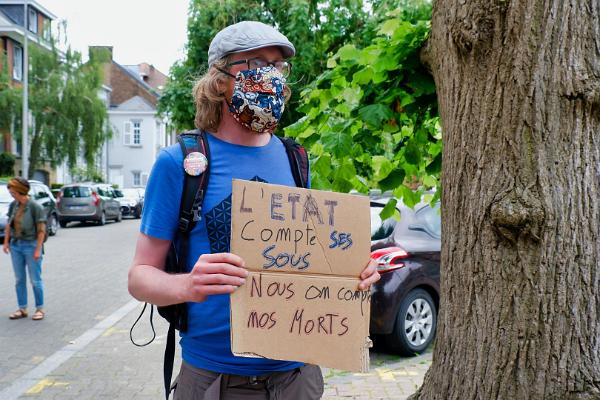 L'ETAT
Compte SES
SOUS
NOUS on compte
nos MORTS